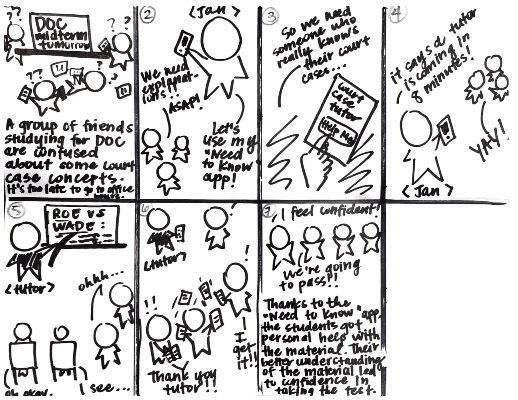 ??
DOC
midterm
tomorrow
??
??
??
A group of friends
studying for DOC
are confused
about some court
case concepts.
It's too late to go to office
hours.
2
<Jan>
We need
explanat-
ions!!
ASAP!
Let's
use my
"Need
to Know"
app!
3
So we need
someone who
really knows
their court
cases...
court
case
tutor
Help Me!
4
it says a tutor
is coming in
8 minutes!
YAY!
<Jan>
5
ROE VS
WADE:
<tutor>
ohhh...
oh okay.
I see...
6
<tutor>
!
!!
!
I
get
it!!
Thank you
tutor!!
7
I feel confident!
We're going
to pass!!
Thanks to the
"Need to Know" app,
the students got
personal help with
the material. Their
better understanding
of the material led
to confidence in
taking the test.